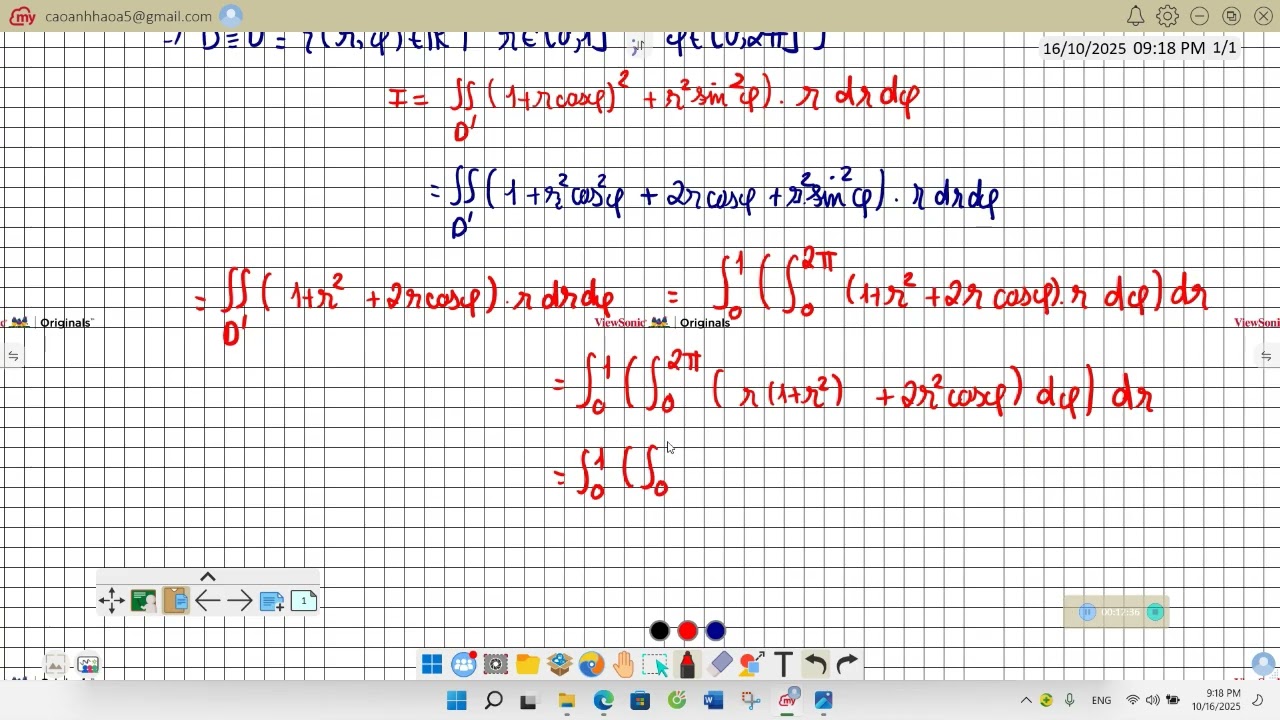 my caoanhhaoa5@gmail.com
16/10/2025 09:18 PM 1/1
I = ∬D' (1+r cosφ)² + r² sin²φ) . r dr dφ
= ∬D' (1 + r² cos²φ + 2r cosφ + r² sin²φ) . r dr dφ
= ∬D' (1+r² + 2r cosφ) . r dr dφ = ∫₀¹ (∫₀^2π (1+r² + 2r cosφ) . r dφ) dr
Originals™ ViewSonic Originals ViewSoni
= ∫₀¹ (∫₀^2π (r(1+r²) + 2r² cosφ) dφ) dr
= ∫₀¹ (∫₀
1
00:12:36
T
ENG
9:18 PM
10/16/2025